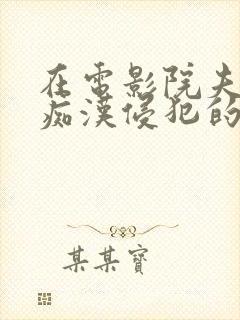 在電影院夫
痴漢侵犯的
某某寶